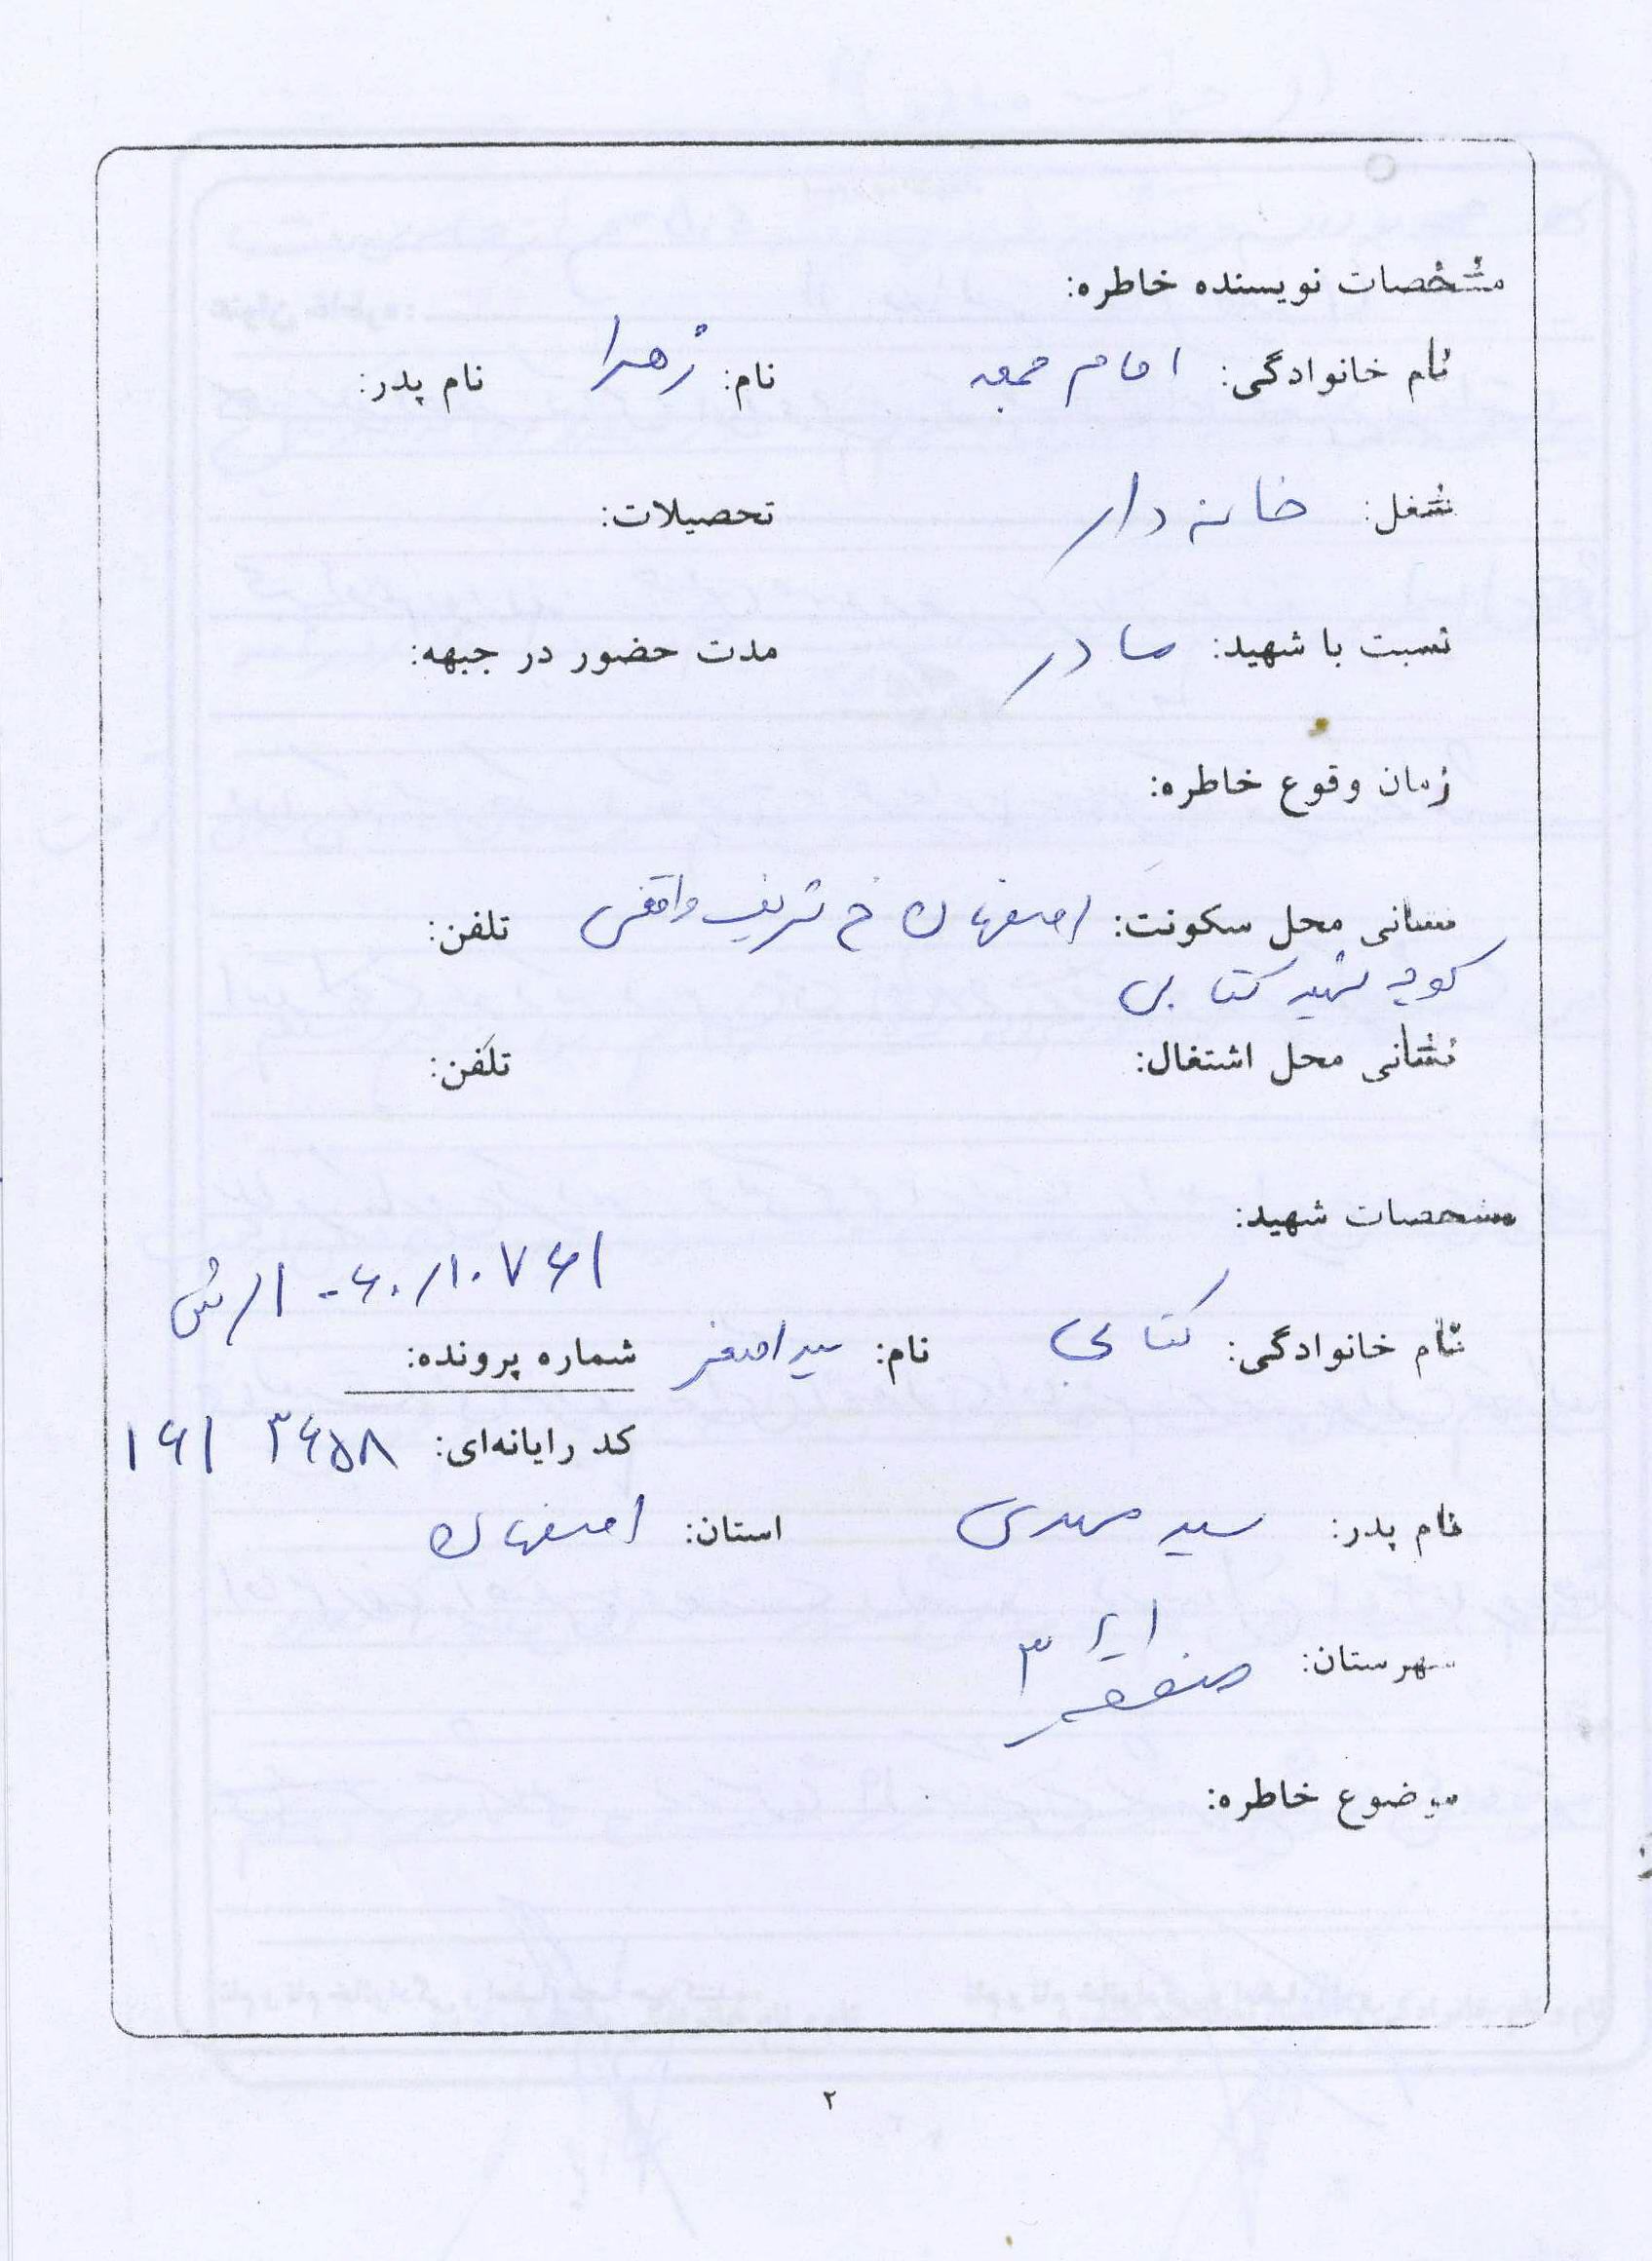 مشخصات نویسنده خاطره:
نام خانوادگی: امام جمعه نام: زهرا نام پدر:
شغل: خانه دار تحصیلات:
نسبت با شهید: مادر مدت حضور در جبهه:
زمان وقوع خاطره:
نشانی محل سکونت: اصفهان خ شریف واقفی تلفن:
کوچه شهید کتابی
نشانی محل اشتغال: تلفن:
مشخصات شهید:
نام خانوادگی: کتابی نام: سید اصغر شماره پرونده:
کد رایانه‌ای: ۳۶۵۸ ۱۶۱
نام پدر: سید مهدی استان: اصفهان
شهرستان: منطقه ۳
موضوع خاطره:
۲